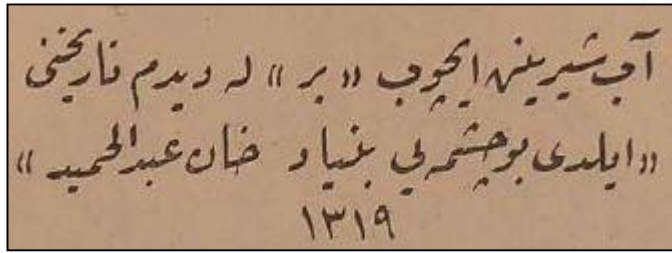 آب شیرینن ایچوب «بر» له دیدم تاریخنی
«ایلدی بوچشمه‌یی بنیاد خان عبدالحمید»
١٣١٩